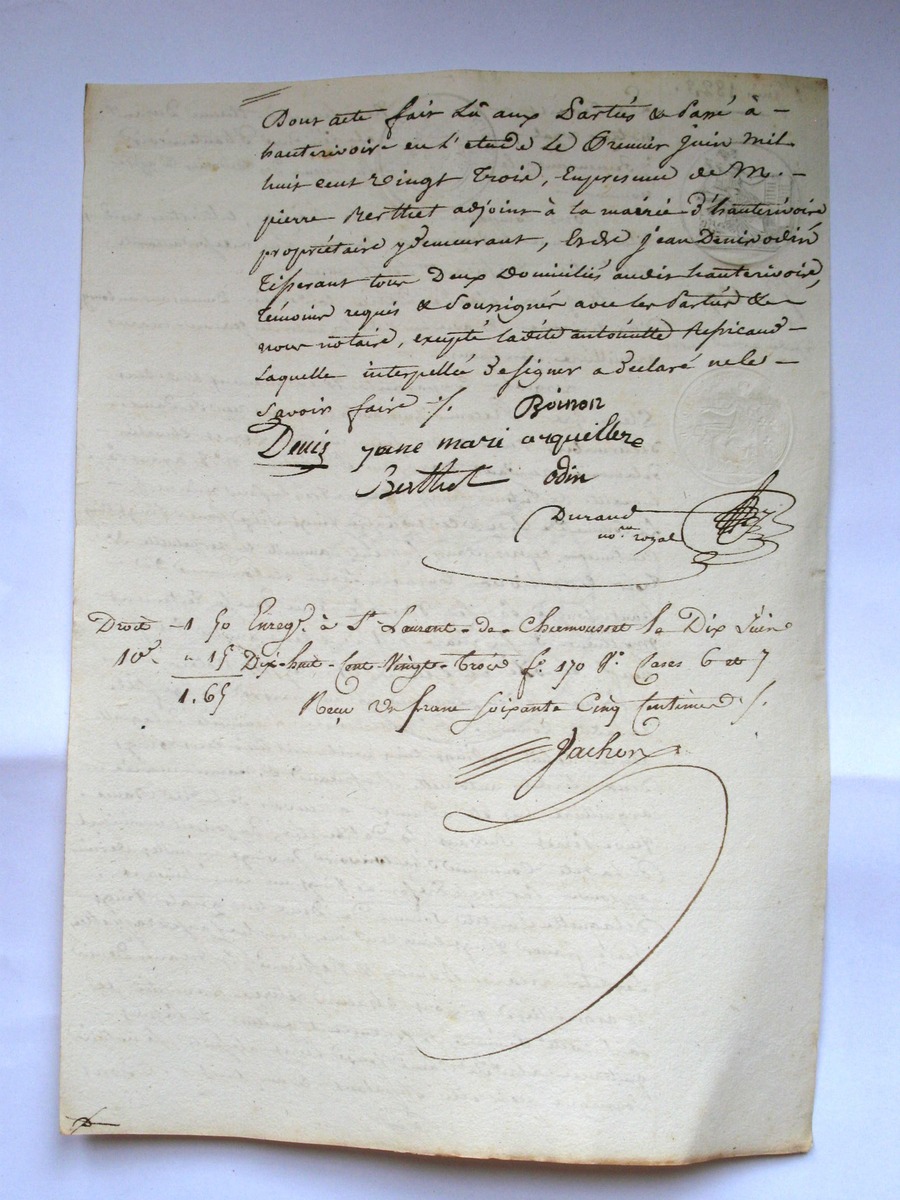 Dont acte fait Lû aux Parties & Passé à
hauterivoire en l'étude Le Premier Juin mil
huit cent vingt trois, En presence de M.
pierre Berthet adjoint à la mairie d'hauterivoire
propriétaire y demeurant, Et de Jean Denis odin
Tisserant tous Deux domiciliés audit hauterivoire,
témoins requis & Soussignés avec les Parties &
nous notaire, excepté ladite antoinette
Laquelle interpellée de signer a declaré ne le
Savoir faire ./.
Boinon
Denis
jane mari arquillere
Berthet odin
Durand
no.re royal
Droit 1 50 Enreg. à St Laurent-de-Chamousset le Dix Juin
10e " 15 Dix-huit-Cent-Vingt-trois fo. 170 Vo. Cases 6 et 7
1.65 Reçu Un franc Soixante Cinq Centimes ./.
Jachon